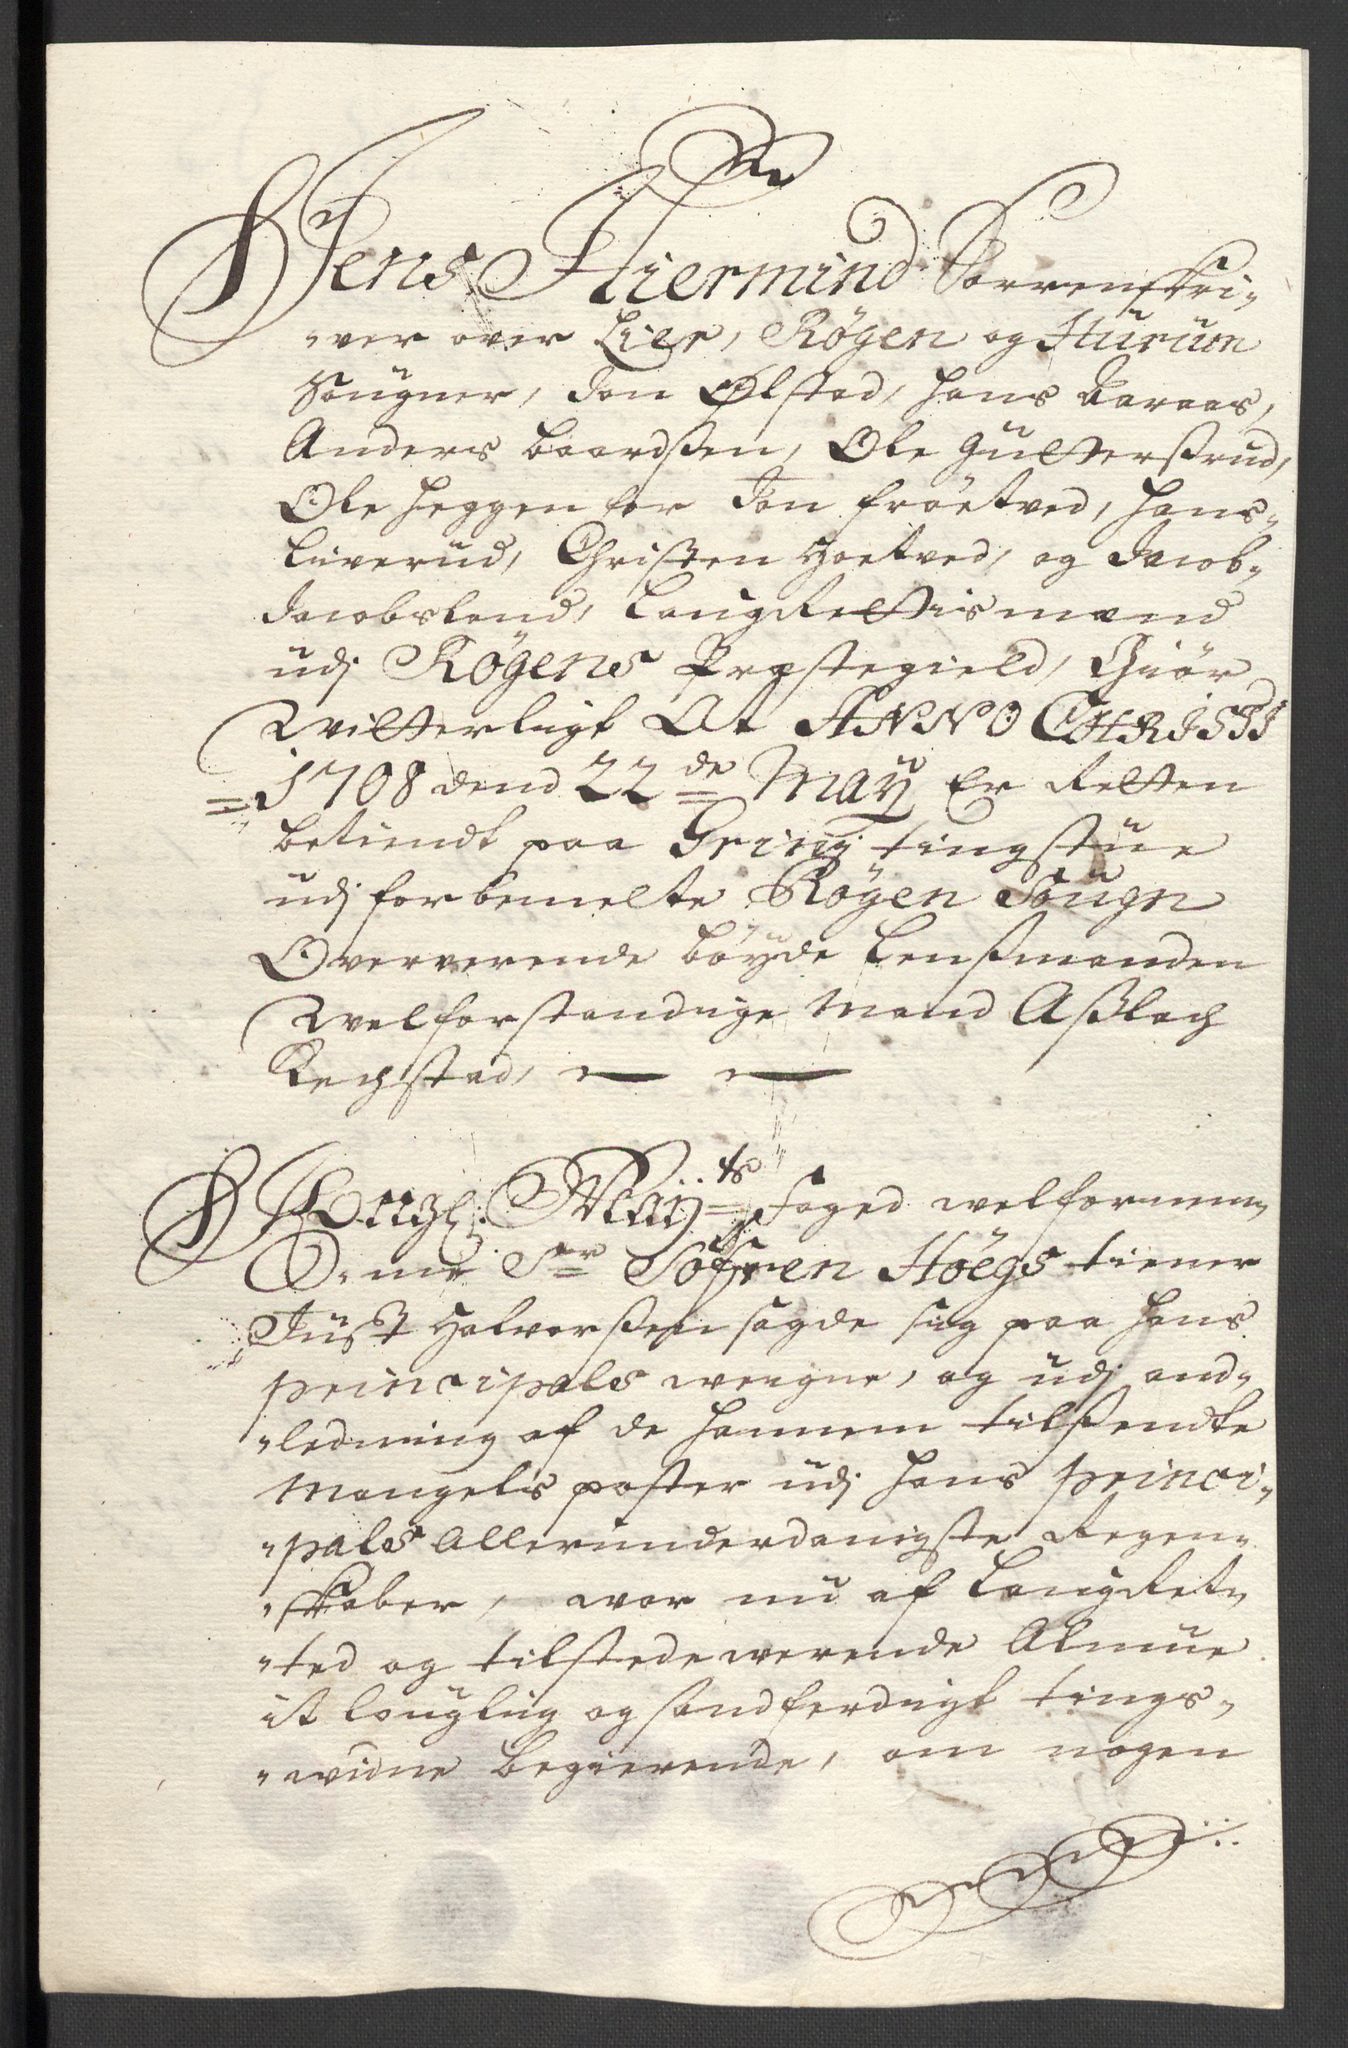 Jens Hiermind Sorrenskri-
-ver over Lier, Røgen og Hurum
Sougner, Jon Ølstad, Hans Aaraas,
Anders Baardßen, Ole Gulterßrud,
Ole Heggen for Jon Frøetved, Hans
Liverud, Christen Hoetved, og Jacob
Jacobsland, LaugRettismænd
udj Røgens Prestegield, Giør
Witterligt At ANNO CHRISTI
1708 dend 22de Maij Er Retten
betiendt paa Grinj tingstue
udj forbemelte Røgen Sougn
Oververende böyde Lensmanden
Welforstandige Mand Aßlach
Kechstad,
Kongl: Maijts Foged welfornem-
me Sr Søfren Høegs tiener
Just Halvorßen sagde sig paa Hans
principals weigne, og udj and-
-ledning af de hannem tilsendte
Mangels poster udj Hans princi-
-pals Allerunderdanigste Regen-
-skaber, war nu af LaugRet-
-ted og tilstedewerende Almue
it louglig og sandferdigt tings-
-widne begierende, om nogen